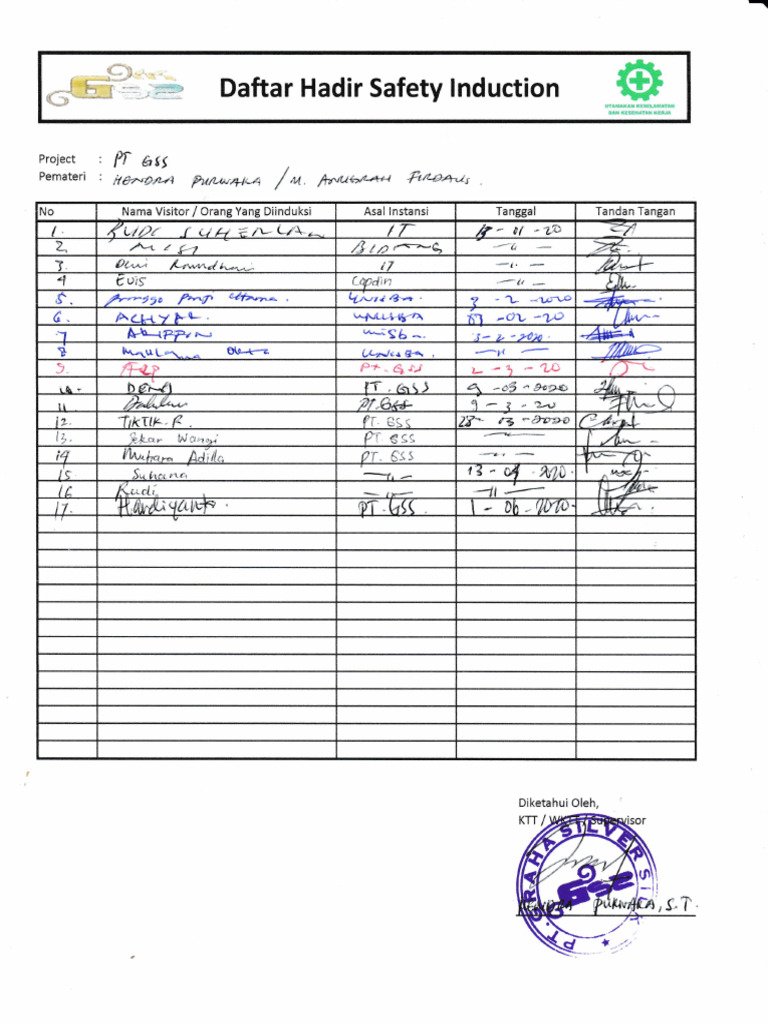 GSS
Daftar Hadir Safety Induction
UTAMAKAN KESELAMATAN
DAN KESEHATAN KERJA
Project : PT GSS
Pemateri : HENDRA PURWAKA / M. ANUGRAH FIRDAUS.
No Nama Visitor / Orang Yang Diinduksi Asal Instansi Tanggal Tandan Tangan
1. RUDI SUHERLAN IT 13-01-20
2 BIDANG -"-
3. Dewi IT -"-
4 Euis -"-
5. Anggo Panji Utama. UNISBA 3-2-2020
6. ACHYAL UNISBA 03-02-20
7 ARIPPIN 3-2-2020
8 Maulana UNISBA -"-
9. PT. GSS 2-3-20
10. DENDI PT. GSS 9-03-2020
11. PT. GSS 9-3-20
12. TIKTIK. R. PT. GSS 28-03-2020
13. Sekar Wangi PT. GSS -"-
14 Mutiara Adilla PT. GSS -"-
15 Suhana -"- 13-04-2020
16 Rudi -"- -"-
17. Hardiyanto. PT. GSS 1-06-2020
Diketahui Oleh,
KTT / WKTT / Supervisor
PT. GRAHA SILVER
GSS
HENDRA PURWAKA, S.T.